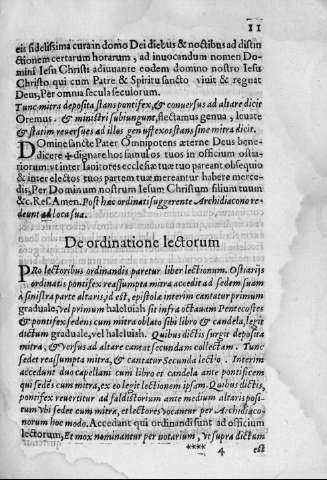 11
eis fidelissima cura in domo Dei diebus & noctibus ad distin
ctionem certarum horarum, ad inuocandum nomen Do-
mini Iesu Christi adiuuante eodem domino nostro Iesu
Christo, qui cum Patre & Spiritu sancto viuit & regnat
Deus, Per omnia secula seculorum.
Tunc mitra deposita stans pontifex, & conuersus ad altare dicit
Oremus. & ministri subiungunt, flectamus genua, leuate
& statim reuersues ad illos genuflexos stans sine mitra dicit.
DOmine sancte Pater Omnipotens æterne Deus bene-
dicere ✠ dignare hos famulos tuos in officium ostia-
riorum: vt inter Ianitores ecclesiæ tuæ tuo pareant obsequio
& inter electos tuos partem tuæ mereantur habere merce-
dis, Per Dominum nostrum Iesum Christum filium tuum
&c. Res. Amen. Post hæc ordinati suggerente Archidiacono re-
deunt ad loca sua.
De ordinatione lectorum
PRo lectoribus ordinandis paretur liber lectionum. Ostiarijs
ordinatis pontifex reassumpta mitra accedit ad sedem suam
à sinistra parte altaris, id est, epistolæ interim cantatur primum
graduale, vel primum haleluiah sit infra octauam Pentecostes
& pontifex sedens cum mitra oblato sibi libro & candela, legit
dictum graduale, vel haleluiah. Quibus dictis surgit deposita
mitra, & versus ad altare cantat secundam collectam. Tunc
sedet reassumpta mitra, & cantatur Secunda lectio. Interim
accedunt duo capellani cum libro et candela ante pontificem
qui sedẽs cum mitra, ex eo legit lectionem ipsam. Quibus dictis,
pontifex reuertitur ad faldistorium ante medium altaris posi-
tum vbi sedet cum mitra, et lectores vocantur per Archidiaco-
norum hoc modo. Accedant qui ordinandi sunt ad officium
lectorum, Et mox nominantur per notarium, vt supra dictum
**** 4 est